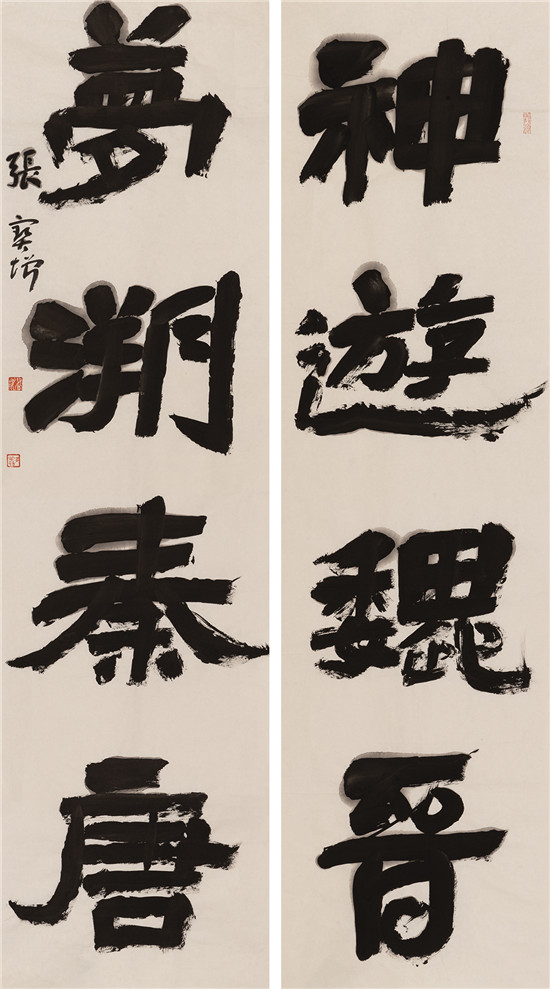 神遊魏晉
夢溯秦唐
張寶增